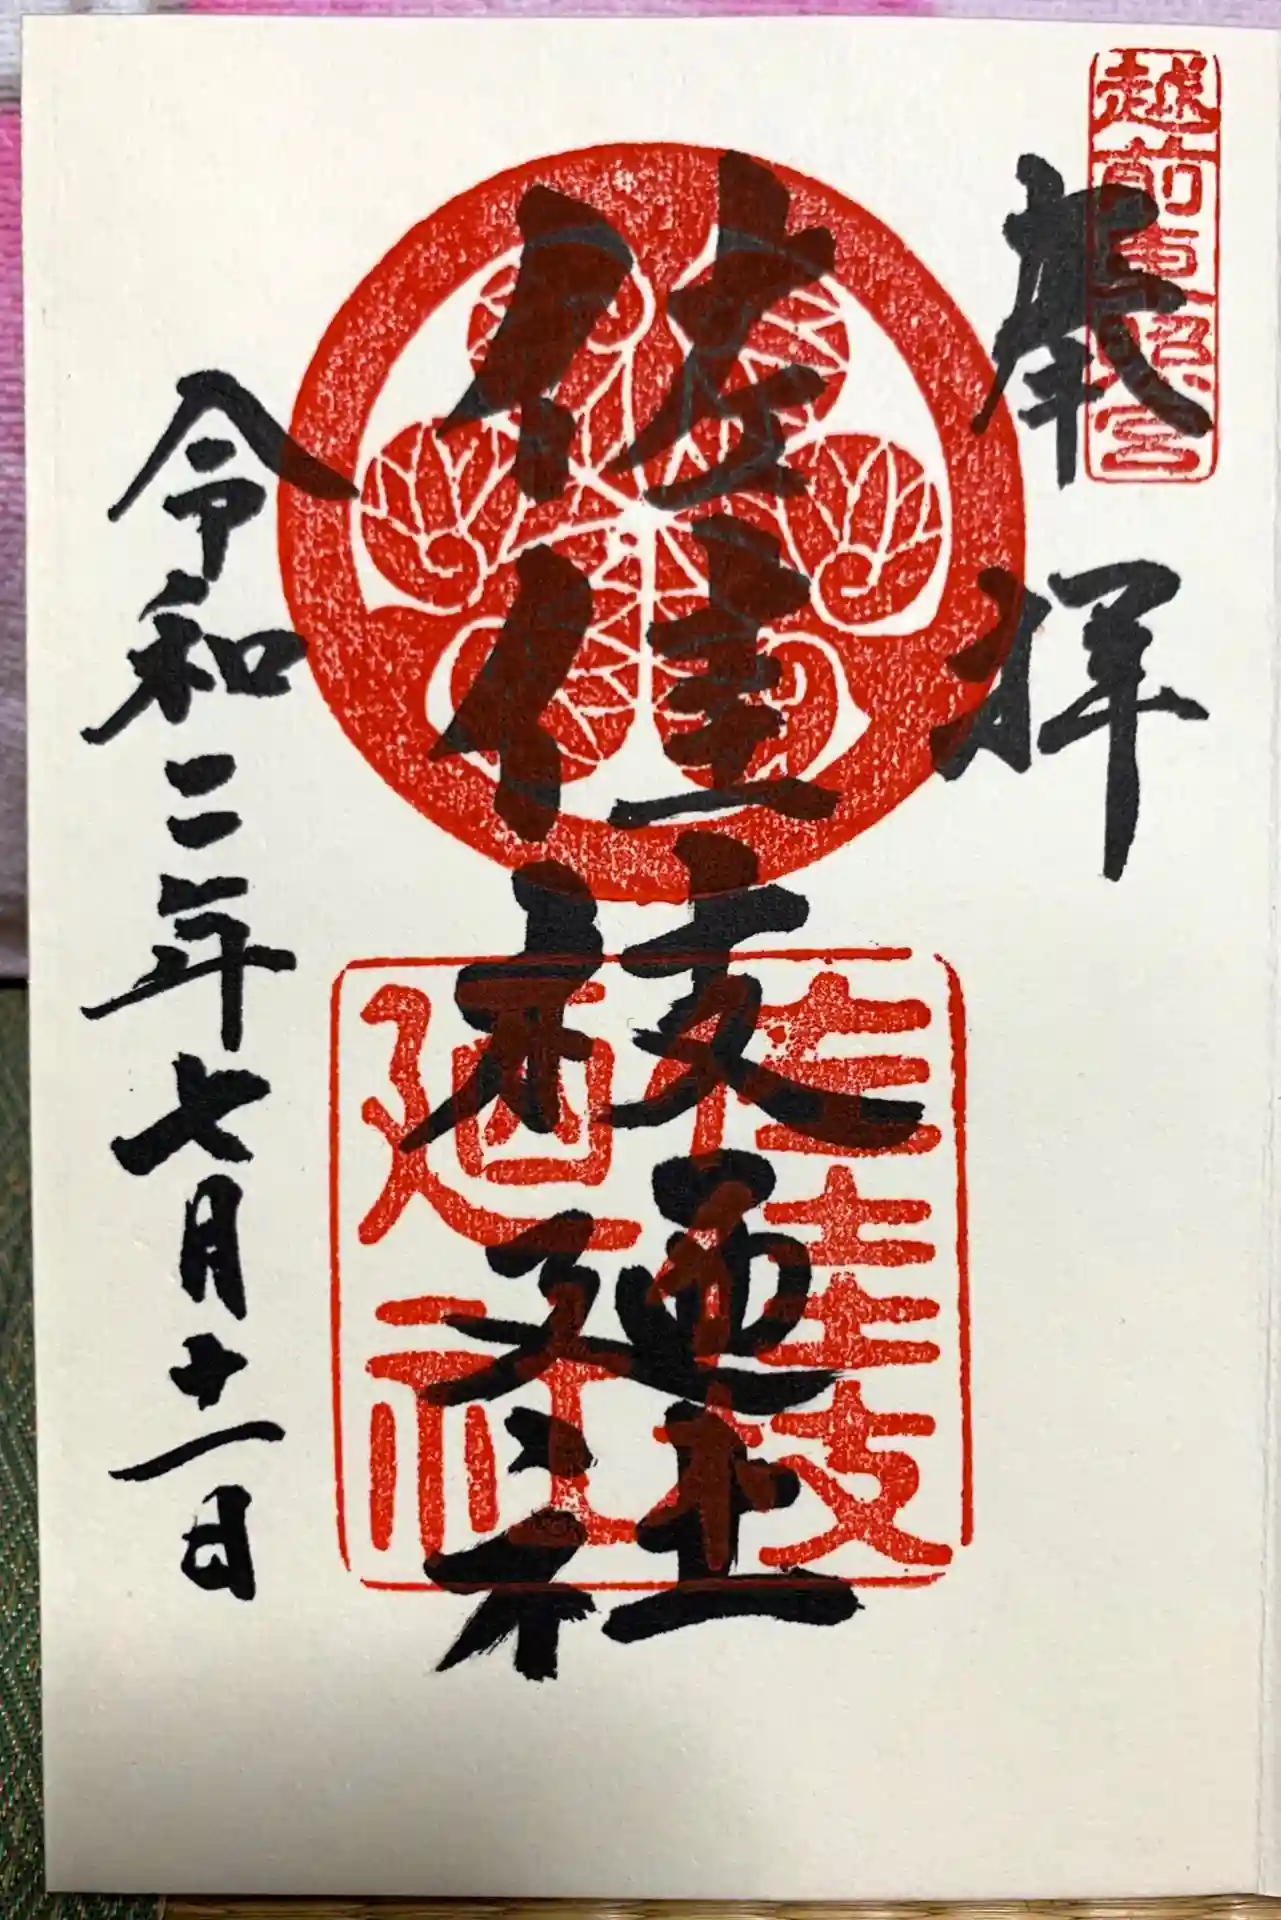 越前東照宮
奉拝
佐佳枝廼社
佐佳枝
廼社
令和二年七月十一日